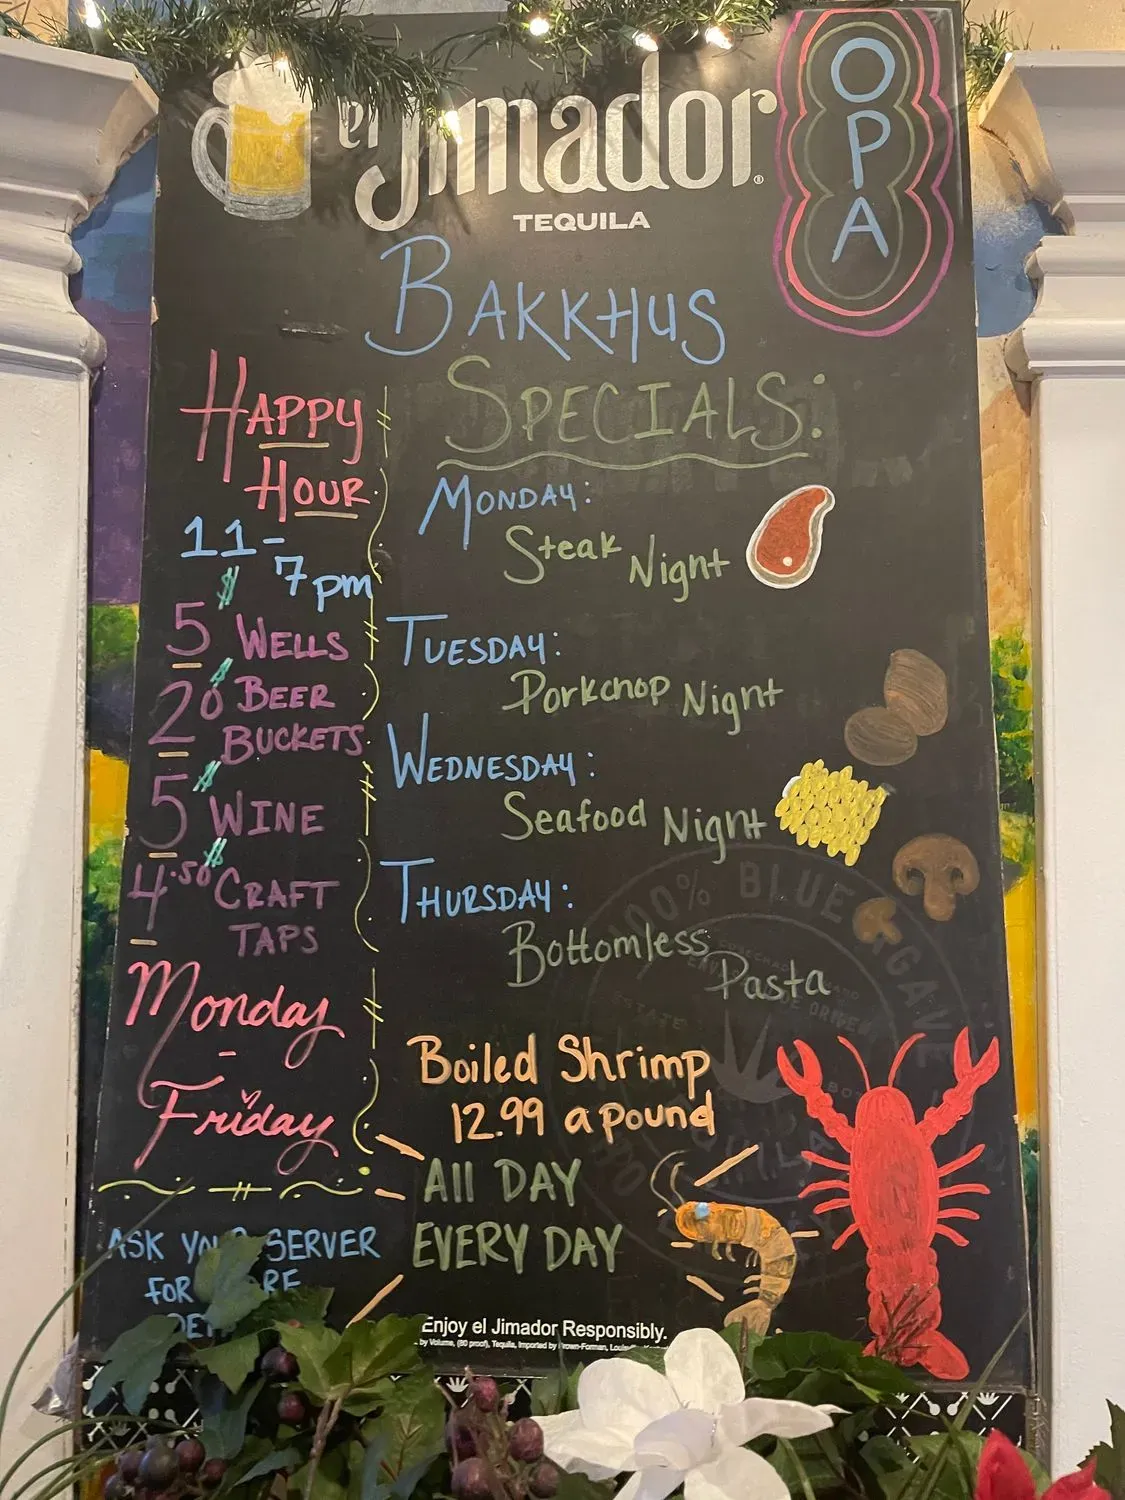 el Jimador®
TEQUILA
OPA
BAKKHUS
SPECIALS:
HAPPY
HOUR
11-
7pm
$5 WELLS
$20 BEER
BUCKETS
$5 WINE
$4.50 CRAFT
TAPS
Monday
-
Friday
ASK YOUR SERVER
FOR
MONDAY:
Steak Night
TUESDAY:
Porkchop Night
WEDNESDAY:
Seafood Night
THURSDAY:
Bottomless
Pasta
Boiled Shrimp
12.99 a pound
All DAY
EVERY DAY
100% BLUE AGAVE
Enjoy el Jimador Responsibly.
by Volume, (80 proof), Tequila, Imported by Brown-Forman,